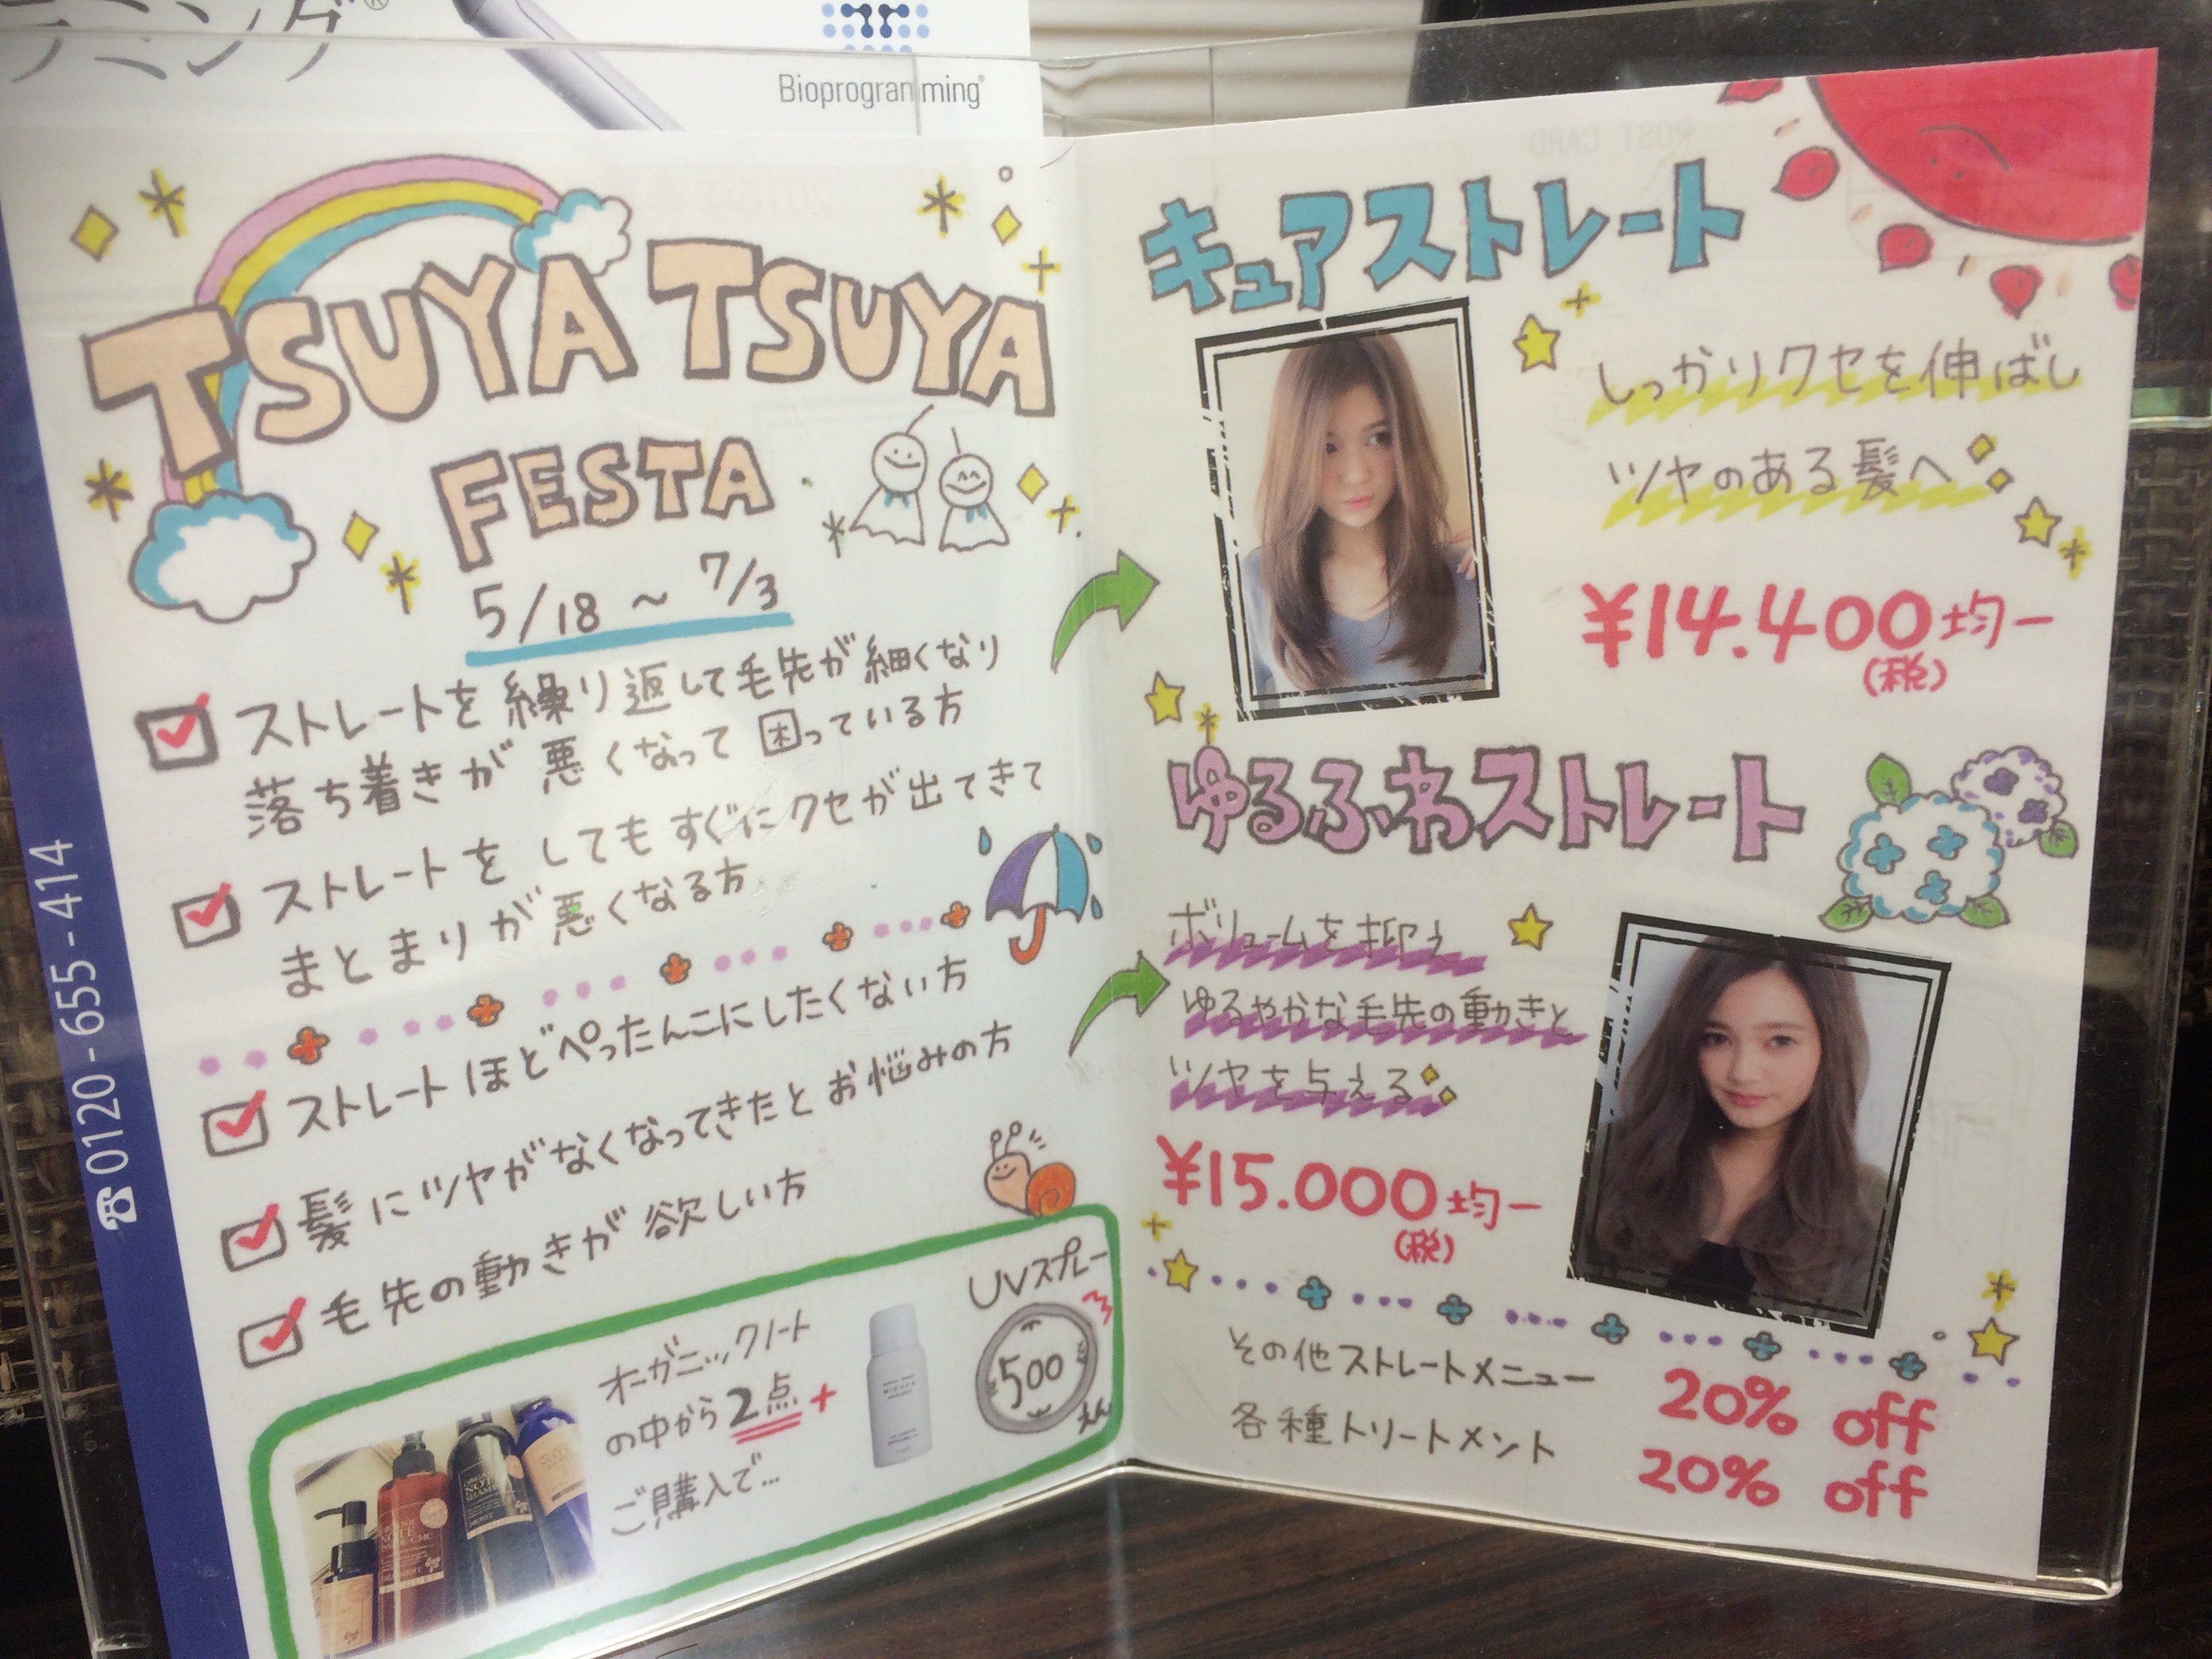 Bioprogramming®
TSUYA TSUYA
FESTA
5/18 ~ 7/3
ストレートを繰り返して毛先が細くなり
落ち着きが悪くなって困っている方
ストレートをしてもすぐにクセが出てきて
まとまりが悪くなる方
ストレートほどぺったんこにしたくない方
髪にツヤがなくなってきたとお悩みの方
毛先の動きが欲しい方
オーガニックノート
の中から2点+
ご購入で…
UVスプレー
500
えん
☎0120-655-414
キュアストレート
しっかりクセを伸ばし
ツヤのある髪へ
¥14.400均一
(税)
ゆるふわストレート
ボリュームを抑え
ゆるやかな毛先の動きと
ツヤを与える
¥15.000均一
(税)
その他ストレートメニュー 20% off
各種トリートメント 20% off